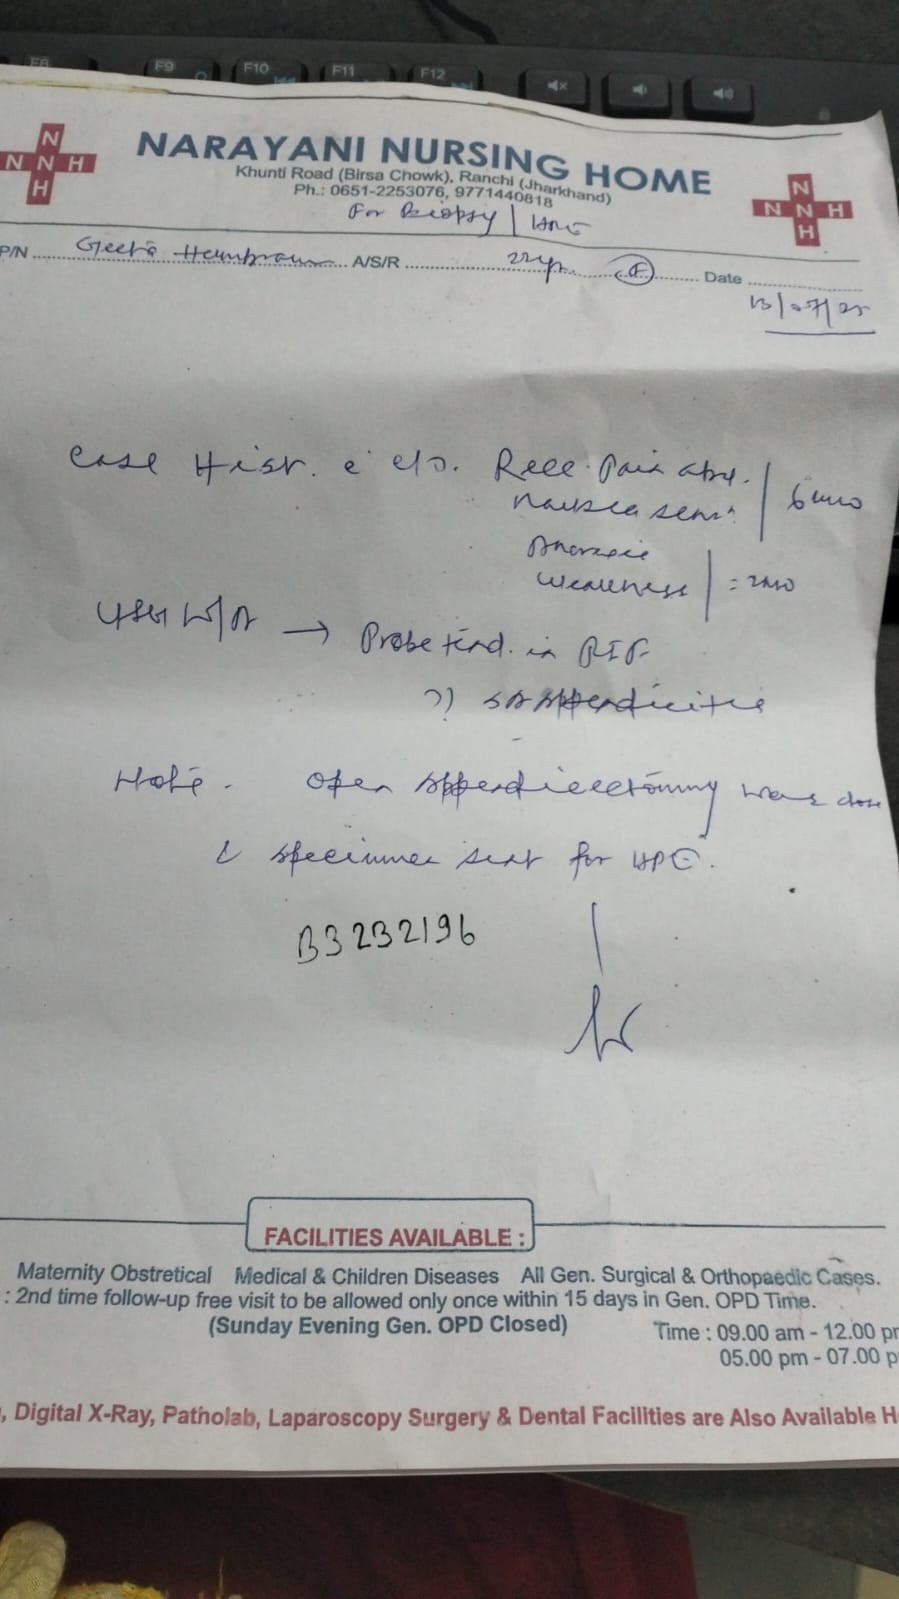 F8 F9 F10 F11 F12
N
N N H
H
NARAYANI NURSING HOME
Khunti Road (Birsa Chowk), Ranchi (Jharkhand)
Ph.: 0651-2253076, 9771440818
N
N N H
H
For Biopsy /
P/N Geeta A/S/R (F) Date
13/07/25
Case Hist. c c/o. Recc. Pain abd.
Nausea 6 mo
weakness = 2mo
USG W/A → Probe tend. in RIF
?? appendicitis
Open appendicectomy was done
& specimen sent for HPE.
B3232196
FACILITIES AVAILABLE :
Maternity Obstretical Medical & Children Diseases All Gen. Surgical & Orthopaedic Cases.
: 2nd time follow-up free visit to be allowed only once within 15 days in Gen. OPD Time.
(Sunday Evening Gen. OPD Closed) Time : 09.00 am - 12.00 
05.00 pm - 07.00
, Digital X-Ray, Patholab, Laparoscopy Surgery & Dental Facilities are Also Available